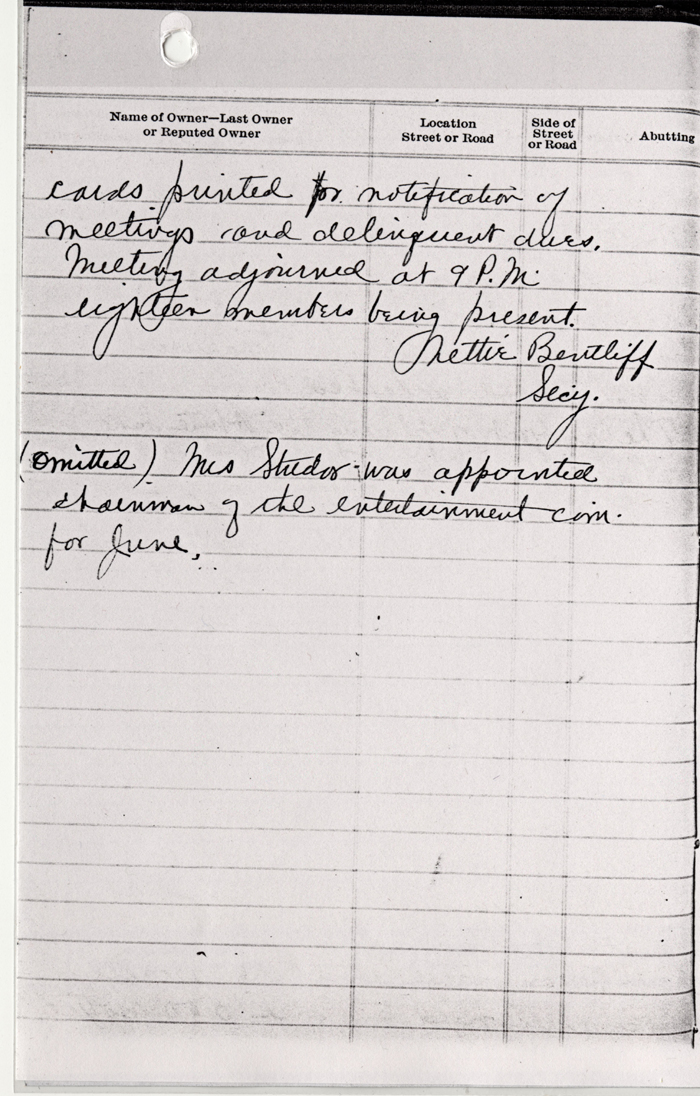 Name of Owner—Last Owner
or Reputed Owner
Location
Street or Road
Side of
Street
or Road
Abutting
cards printed for notification of
meetings and delinquent dues.
Meeting adjourned at 9 P.M.
eighteen members being present.
Nettie Bentliff
Secy.
(omitted) Mrs Studor was appointed
chairman of the entertainment com.
for June.